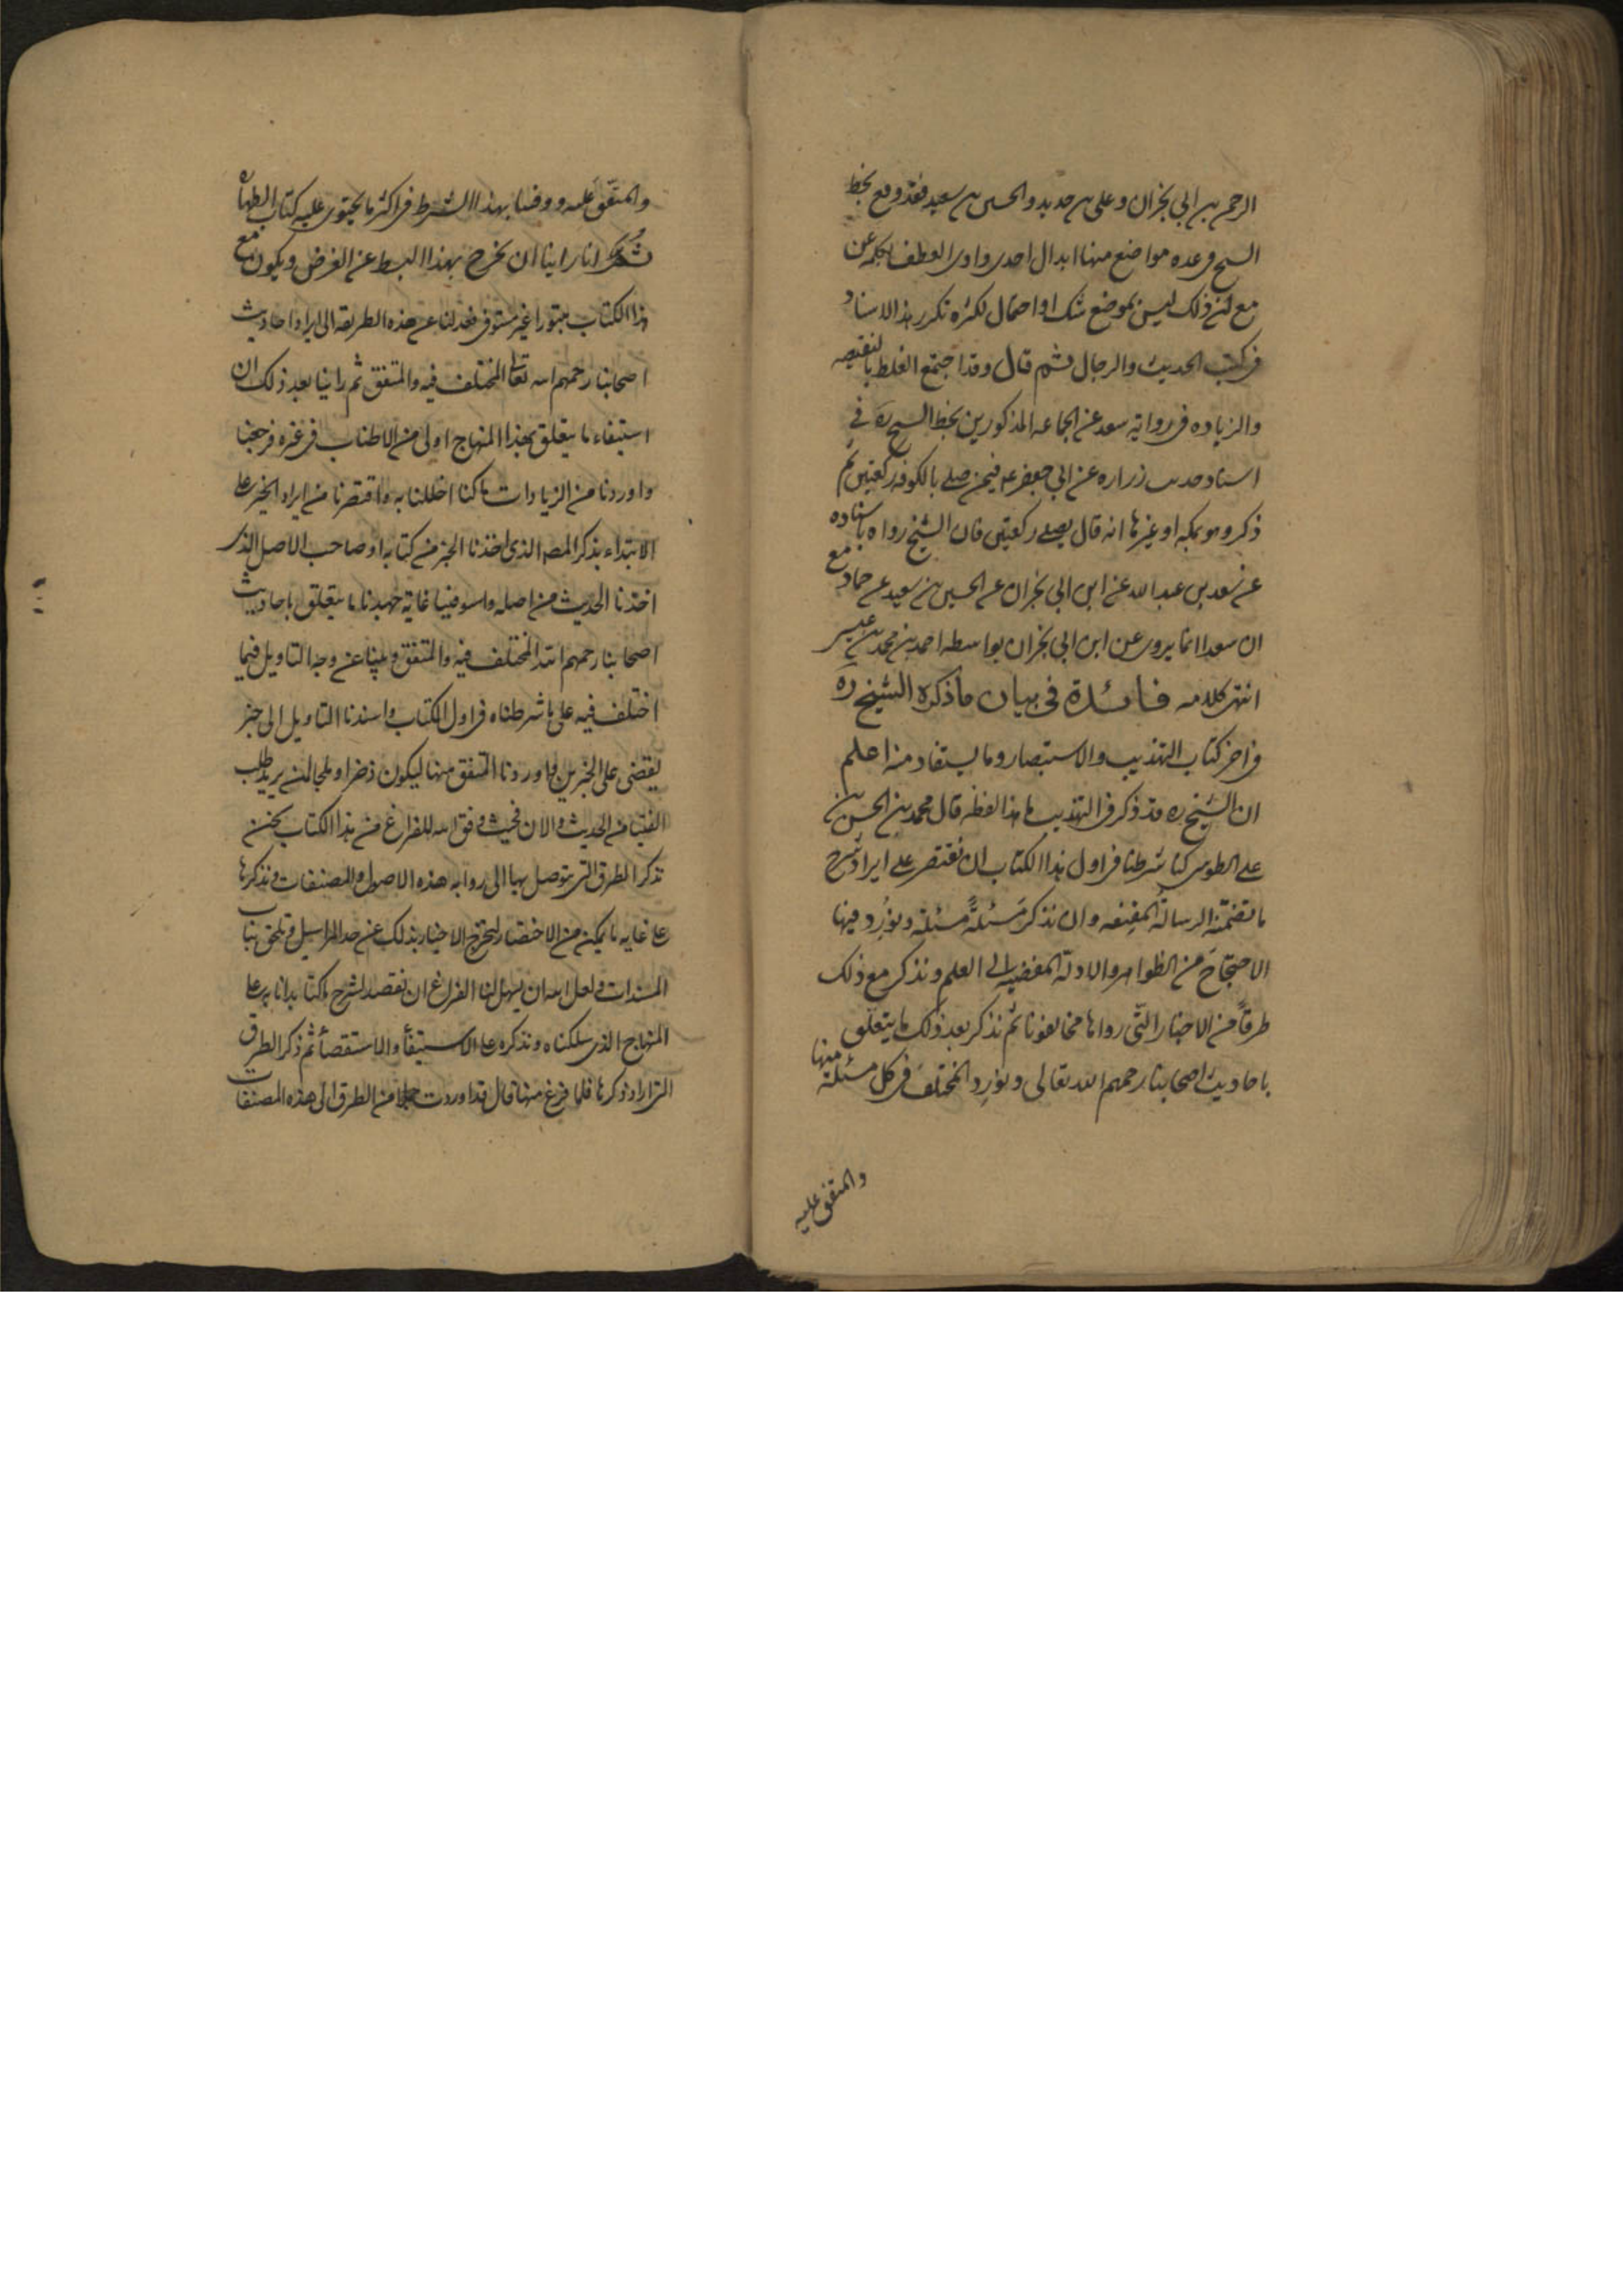 الرحمن بن ابي نجران وعلى بن حديد والحسين بن سعيد فقد وقع بخط
الشيخ فى عده مواضع منها ابدال احدى واوى العطف بكلمه عن
مع ان ذلك ليس بموضع شك او احتمال لكثره تكرر هذا الاسناد
فى كتب الحديث والرجال ثم قال وقد اجتمع الغلط بالنقيصه
والزياده فى روايه سعد عن الجماعه المذكورين بخط الشيخ ره فى
اسناد حديث زراره عن ابي جعفر ع فيمن صلى بالكوفه ركعتين ثم
ذكر وهو بمكه او غيرها انه قال يصلى ركعتين فان الشيخ رواه باسناده
عن سعد بن عبد الله عن ابن ابي نجران عن الحسين بن سعيد عن حماد مع
ان سعدا انما يروى عن ابن ابي نجران بواسطه احمد بن محمد بن عيسى
انتهى كلامه فائدة فى بيان ما ذكره الشيخ ره
فى اخر كتاب التهذيب والاستبصار وما يستفاد منه اعلم
ان الشيخ ره قد ذكر فى التهذيب ما هذا لفظه قال محمد بن الحسن بن
على الطوسى كنا شرطنا فى اول هذا الكتاب ان نقتصر على ايراد شرح
ما تضمنته الرسالة المقنعه وان نذكر مسئلةً مسئلة ونورد فيها
الاحتجاج من الظواهر والادلة المفضيه الى العلم ونذكر مع ذلك
طرفاً من الاخبار التى رواها مخالفونا ثم نذكر بعد ذلك ما يتعلق
باحاديث اصحابنا رحمهم الله تعالى ونورد المختلف فى كل مسئلة منها
والمتفق عليه
والمتفق عليه ووفينا بهذا الشرط فى اكثر ما يحتوى عليه كتاب الطهاة
ثم انا راينا ان نخرج بهذا البسط عن الغرض ويكون مع
هذا الكتاب مبتورا غير مستوفى فعدلنا عن هذه الطريقه الى ايراد احاديث
اصحابنا رحمهم الله تعالى المختلف فيه والمتفق ثم راينا بعد ذلك ان
استيفاء ما يتعلق بهذا المنهاج اولى من الاطناب فى غيره فرجعنا
واوردنا من الزيادات ما كنا اخللنا به واقتصرنا من ايراد الخبر على
الابتداء بذكر المصـ الذى اخذنا الخبر من كتابه او صاحب الاصل الذى
اخذنا الحديث من اصله واستوفينا غاية جهدنا ما يتعلق باحاديث
اصحابنا رحمهم الله المختلف فيه والمتفق وبينا عن وجه التاويل فيما
اختلف فيه على ما شرطناه فى اول الكتاب واسندنا التاويل الى خبر
يقضى على الخبرين واوردنا المتفق منها ليكون ذخرا وملجا لمن يريد طلب
الفتيا من الحديث والان فحيث وفق الله للفراغ من هذا الكتاب نحن
نذكر الطرق التى يتوصل بها الى روايه هذه الاصول والمصنفات ونذكرها
على غايه ما يمكن من الاختصار لتخرج الاخبار بذلك عن حد المراسيل وتلحق بباب
المسندات ولعل الله ان يسهل لنا الفراغ ان نقصد لشرح ما كنا بدانا به على
المنهاج الذى سلكناه ونذكره على الاستيفاء والاستقصاء ثم ذكر الطرق
التى اراد ذكرها فلما فرغ منها قال قد اوردت جملا من الطرق الى هذه المصنفات